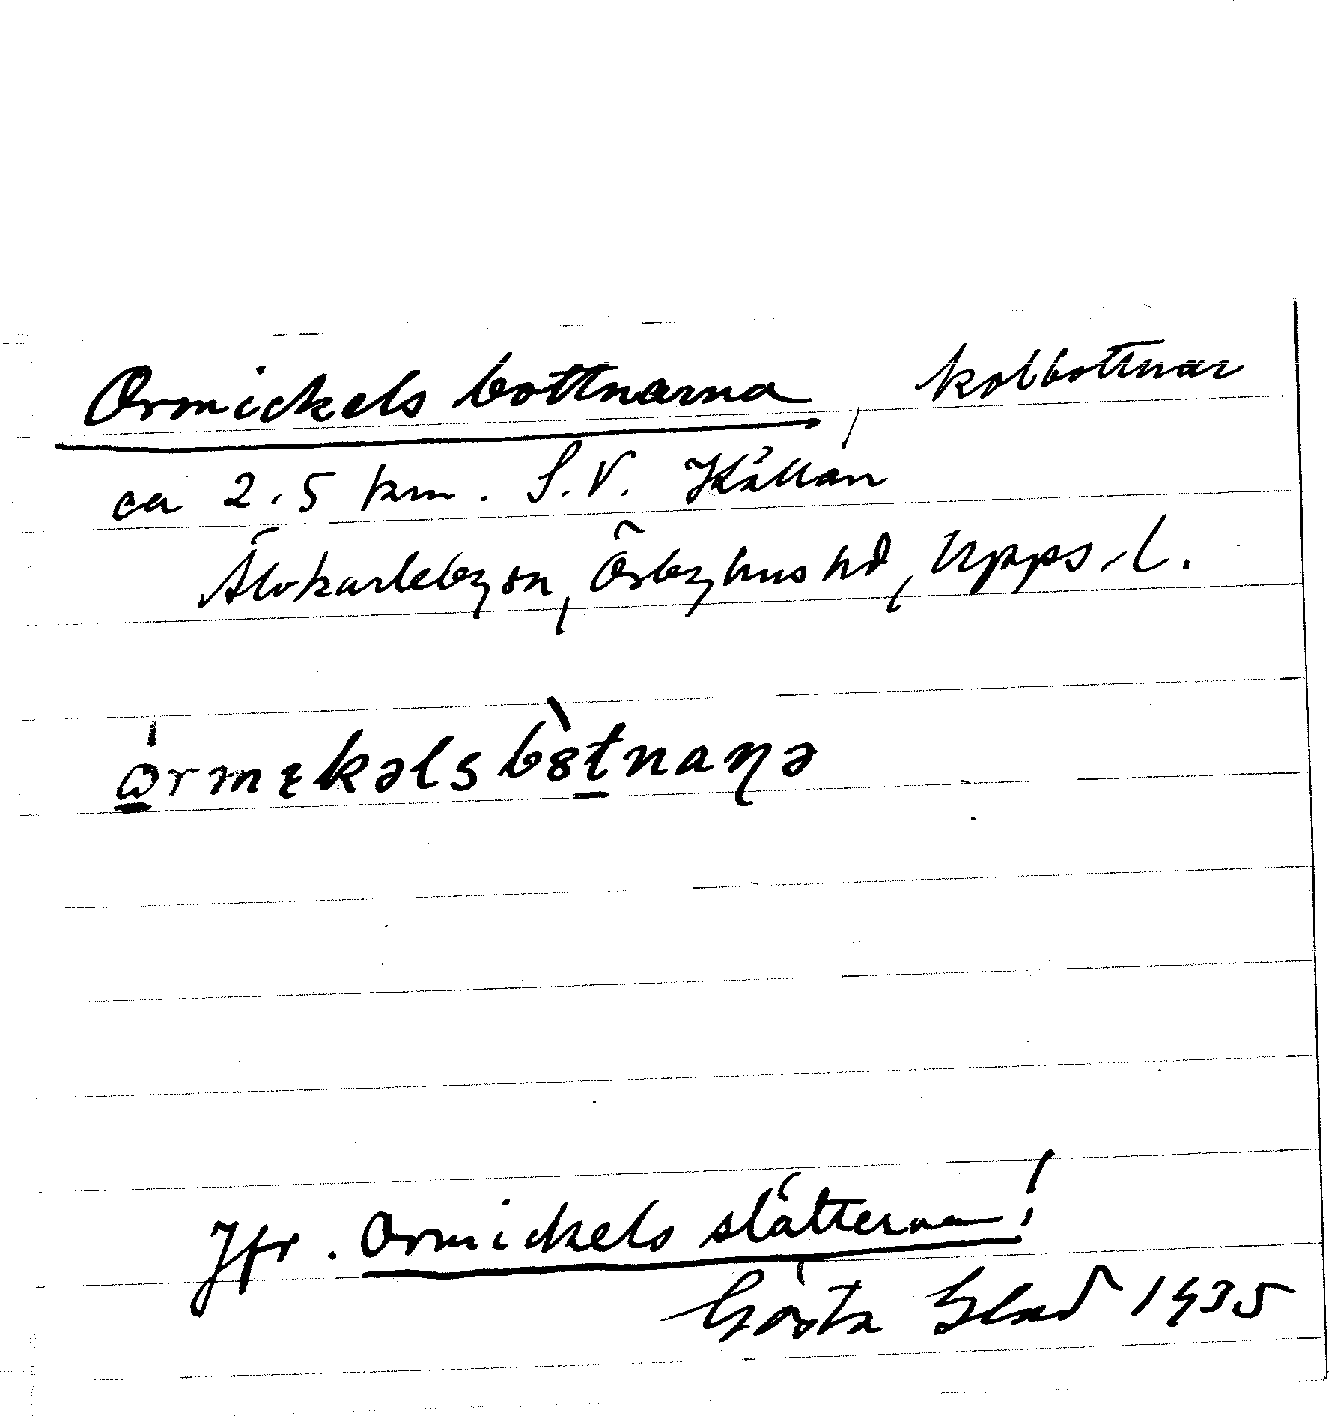 Ormickels bottnarna, kolbottnar
ca 2.5 km. S.V. Källan
Älvkarleby sn, Örbyhus hd, Upps. l.
Jfr. Ormickels slätterna!
Gösta Glad 1935